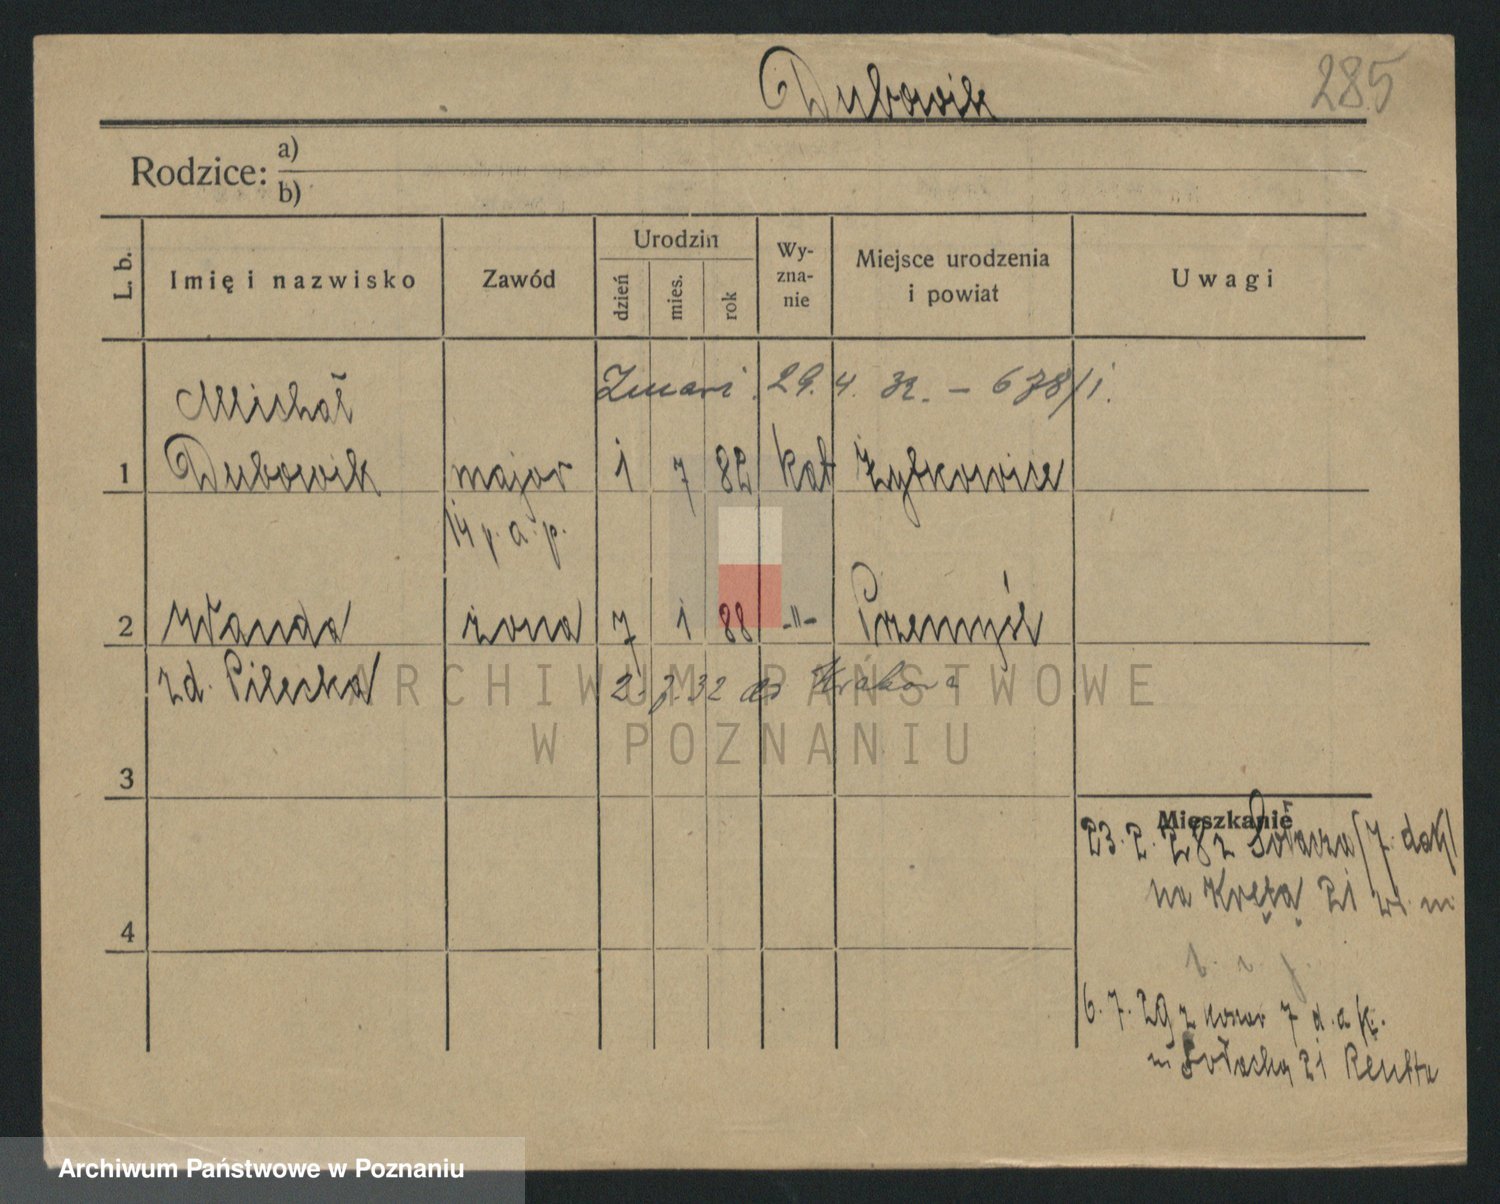 Dubowik
285
Rodzice: a)
b)
L. b.
Imię i nazwisko
Zawód
Urodzin
dzień
mies.
rok
Wy-
zna-
nie
Miejsce urodzenia
i powiat
Uwagi
Zmarł 29.4.32. – 678/1.
Michał
1 Dubowik major 1 7 82 kat Żytkowice
14 p. a. p.
2 Wanda żona 7 1 88 -"- Przemyśl
zd. Pilecka 2. 7. 32 do Krakowa
3
4
Mieszkanie
23. 2. 28 z Sołacza (7. dak)
na Krętą 21
6. 7. 29 z koszar 7 d. a. k.
Sołacka 21
ARCHIWUM PAŃSTWOWE
W POZNANIU
Archiwum Państwowe w Poznaniu